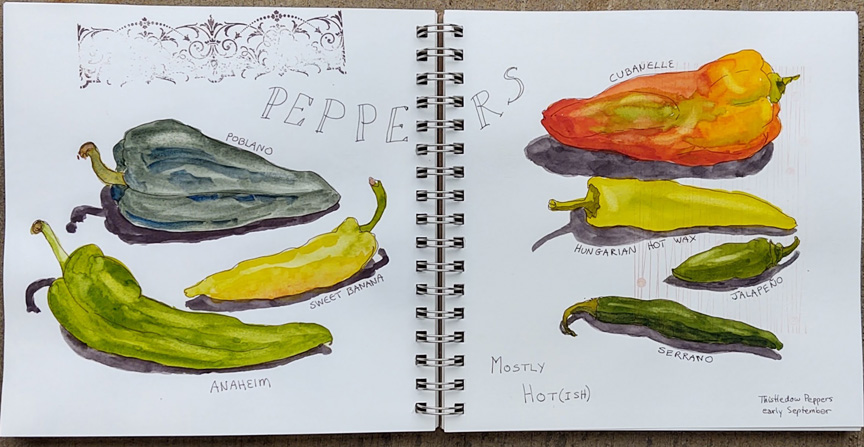 PEPPERS
POBLANO
SWEET BANANA
ANAHEIM
CUBANELLE
HUNGARIAN HOT WAX
JALAPEÑO
SERRANO
MOSTLY
HOT(ISH)
Thistledow Peppers
early September